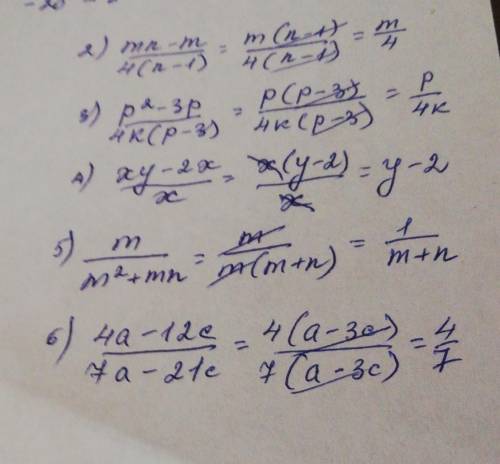 2) mn-m/4(n-1) = m(n-1)/4(n-1) = m/4
3) p²-3p/4k(p-3) = p(p-3)/4k(p-3) = p/4k
4) xy-2x/x = x(y-2)/x = y-2
5) m/m²+mn = m/m(m+n) = 1/m+n
6) 4a-12c/7a-21c = 4(a-3c)/7(a-3c) = 4/7